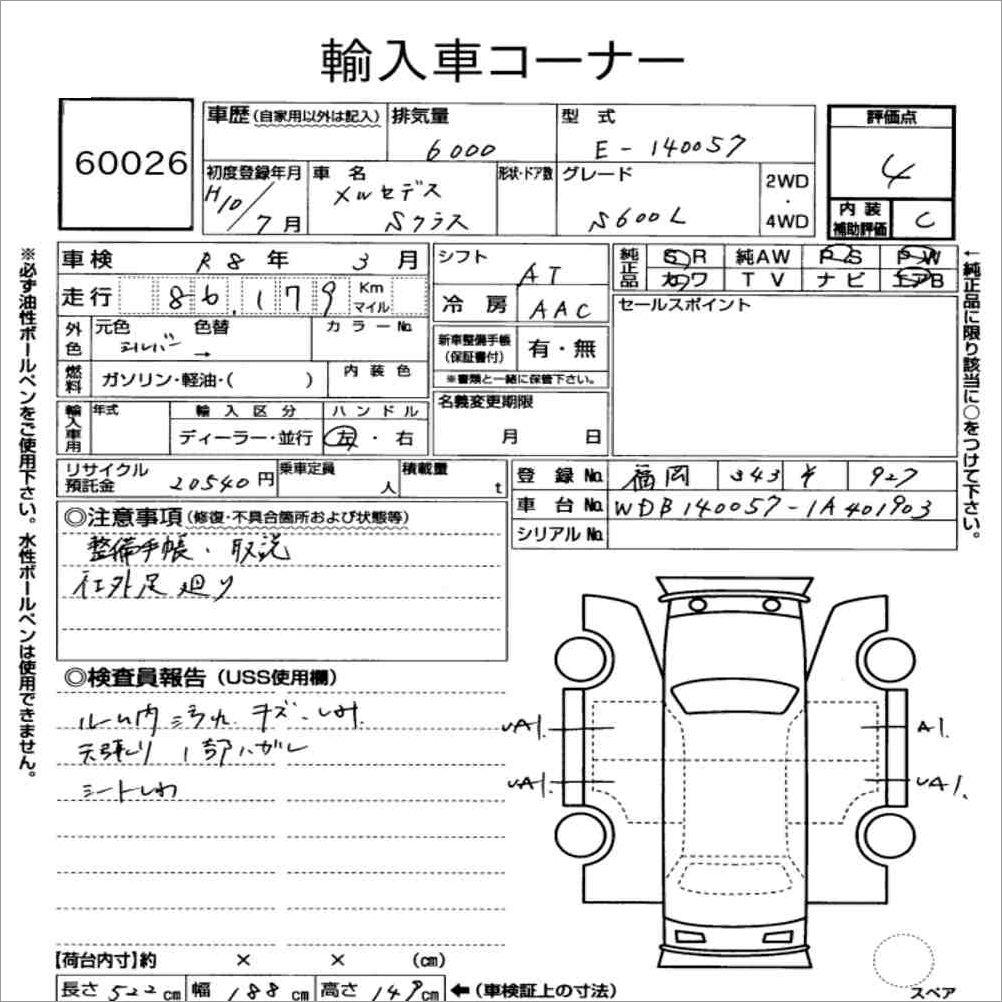 輸入車コーナー
60026
車歴 (自家用以外は記入) 排気量 6000 型式 E-140057
評価点 4
初度登録年月 H10/7月 車名 メルセデス Sクラス 形状・ドア数 グレード S600L 2WD・4WD
内装補助評価 C
※必ず油性ボールペンをご使用下さい。水性ボールペンは使用できません。
車検 R8年 3月
走行 86,179 Km マイル
外色 元色 シルバー 色替 → カラーNo.
燃料 ガソリン・軽油・( ) 内装色
輸入車用 年式 輸入区分 ディーラー・並行 ハンドル 左・右
シフト AT
冷房 AAC
新車整備手帳 (保証書付) 有・無
※書類と一緒に保管下さい。
名義変更期限 月 日
純正品 SR 純AW PS PW
カワ TV ナビ エアB
セールスポイント
←純正品に限り該当に○をつけて下さい。
リサイクル預託金 20540円 乗車定員 人 積載量 t
登録No. 福岡 343 927
車台No. WDB140057-1A401903
シリアルNo.
◎注意事項 (修復・不具合箇所および状態等)
整備手帳・取説
社外足廻り
◎検査員報告 (USS使用欄)
ルーム内 汚れ キズ・しみ
天張り 1部ハガレ
シートしわ
UA1. A1.
UA1. UA1.
【荷台内寸】約 × × (cm)
長さ 522cm 幅 188cm 高さ 147cm ←(車検証上の寸法)
スペア